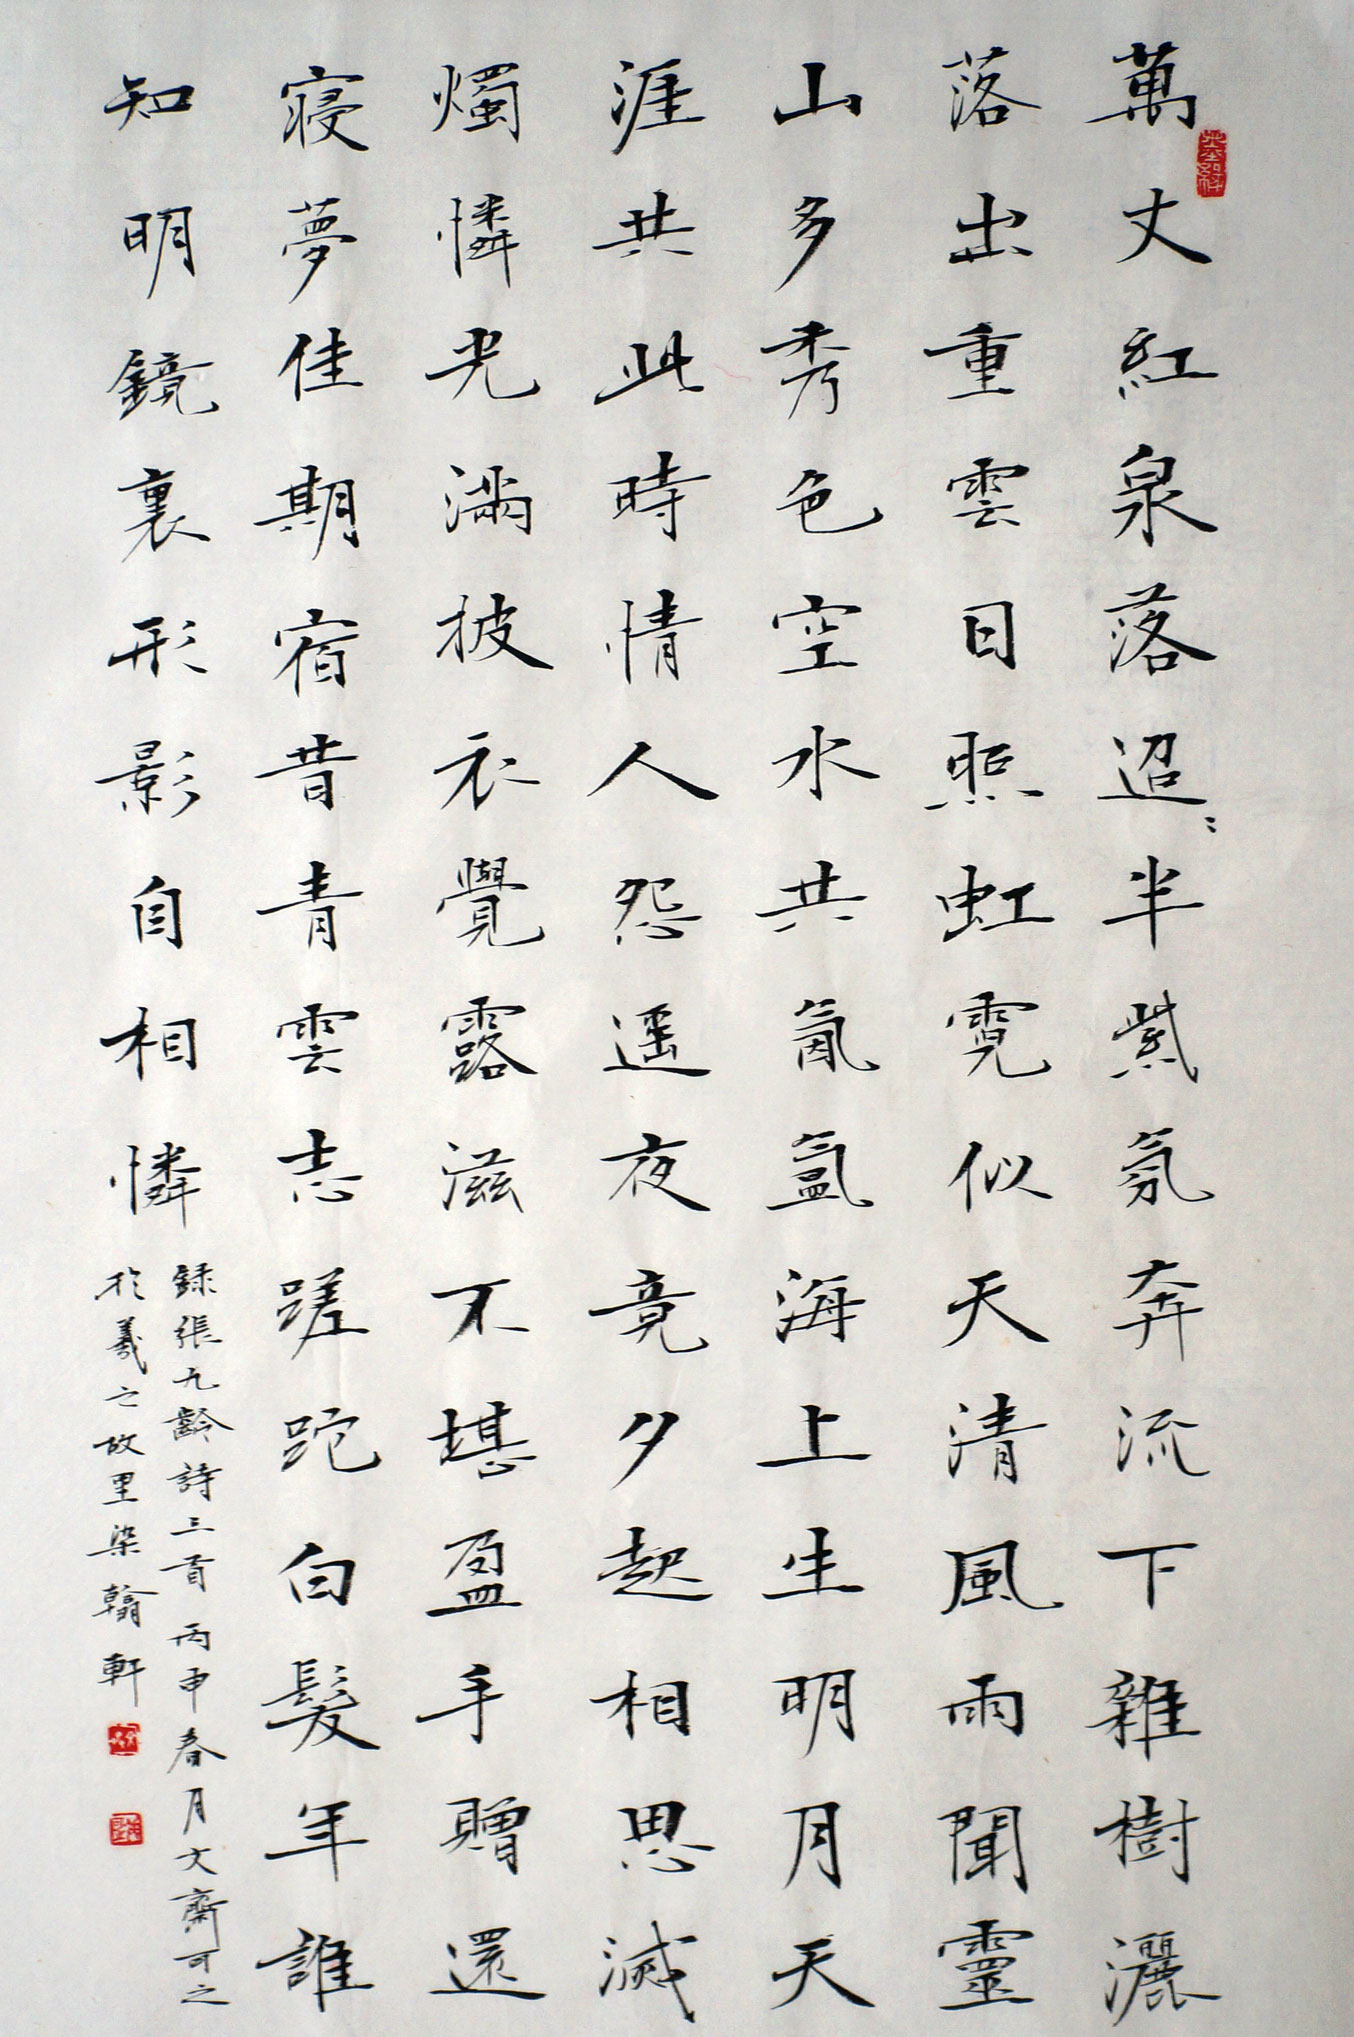 萬丈紅泉落迢〻半紫氛奔流下雜樹灑
落出重雲日照虹霓似天清風雨聞靈
山多秀色空水共氤氳海上生明月天
涯共此時情人怨遥夜竟夕起相思滅
燭憐光滿披衣覺露滋不堪盈手贈還
寢夢佳期宿昔青雲志蹉跎白髮年誰
知明鏡裏形影自相憐
録張九齡詩三首 丙申春月文齋可之
於羲之故里染翰軒